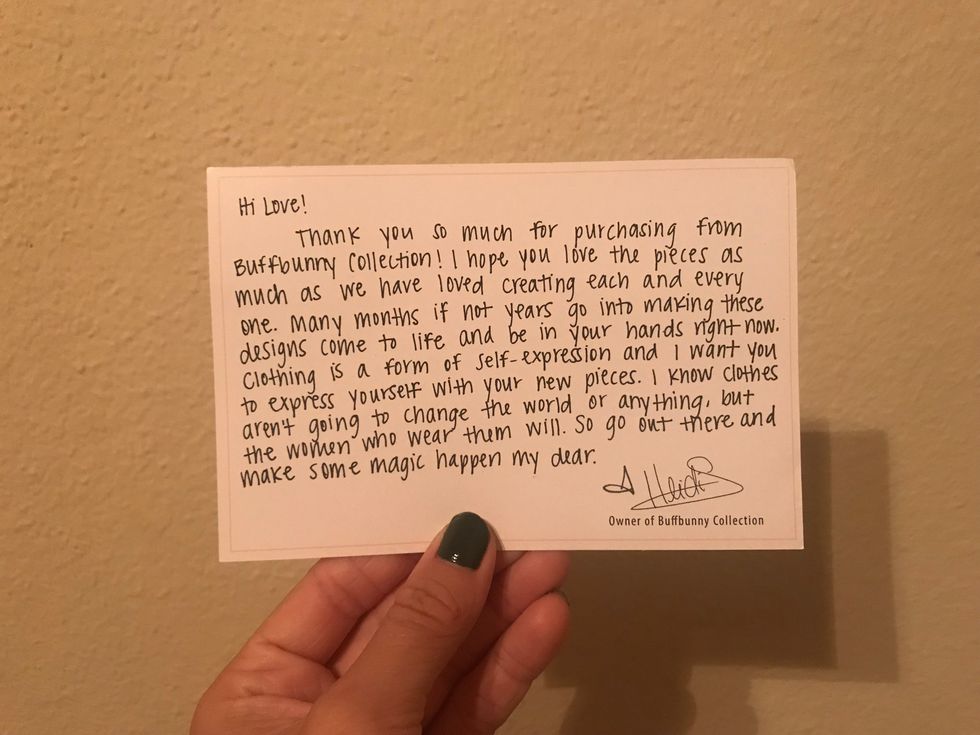 Hi Love!
Thank you so much for purchasing from
Buffbunny Collection! I hope you love the pieces as
much as we have loved creating each and every
one. Many months if not years go into making these
designs come to life and be in your hands right now.
Clothing is a form of self-expression and I want you
to express yourself with your new pieces. I know clothes
aren't going to change the world or anything, but
the women who wear them will. So go out there and
make some magic happen my dear.
Heidi
Owner of Buffbunny Collection